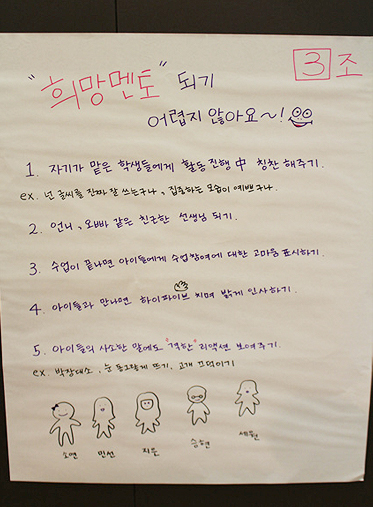 3조
"희망멘토" 되기
어렵지 않아요~!
1. 자기가 맡은 학생들에게 활동 진행 中 칭찬 해주기.
ex. 넌 글씨를 진짜 잘 쓰는구나, 집중하는 모습이 예쁘구나.
2. 언니, 오빠 같은 친근한 선생님 되기.
3. 수업이 끝나면 아이들에게 수업참여에 대한 고마움 표시하기.
4. 아이들과 만나면 하이파이브 치며 밝게 인사하기.
5. 아이들의 사소한 말에도 "격한" 리액션 보여주기.
ex. 박장대소, 눈 동그랗게 뜨기, 고개 끄덕이기
소연 민선 지은 승현 세현